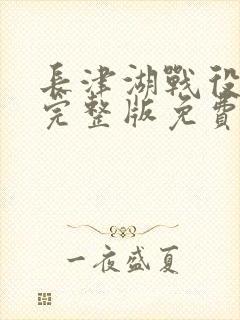 長津湖戰役
完整版免費
一夜盛夏